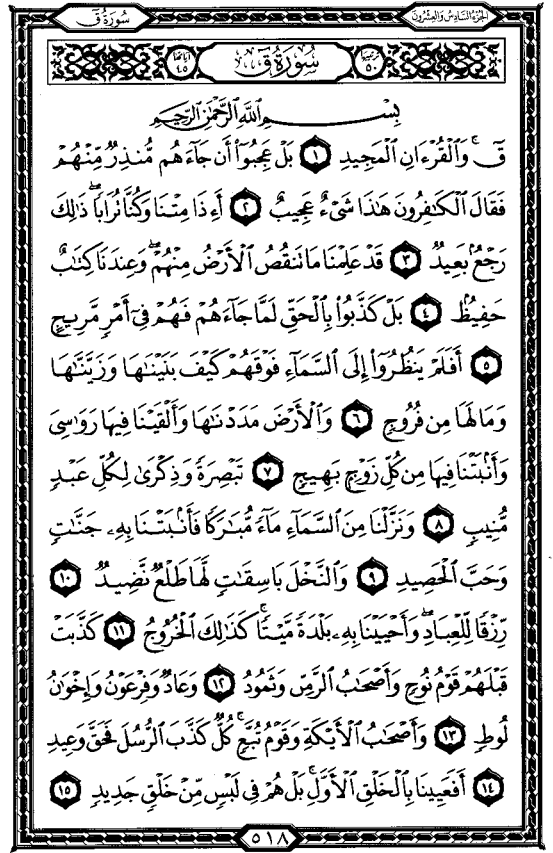 سُورَةُ قٓ الجُزءُ السَّادِسُ وَالعِشرُونَ
ترتيبها ٥٠ سُورَةُ قٓ آياتها ٤٥
بِسْمِ ٱللَّهِ ٱلرَّحْمَٰنِ ٱلرَّحِيمِ
قٓۚ وَٱلْقُرْءَانِ ٱلْمَجِيدِ ١ بَلْ عَجِبُوٓا۟ أَن جَآءَهُم مُّنذِرٌ مِّنْهُمْ
فَقَالَ ٱلْكَٰفِرُونَ هَٰذَا شَىْءٌ عَجِيبٌ ٢ أَءِذَا مِتْنَا وَكُنَّا تُرَابًاۖ ذَٰلِكَ
رَجْعٌۢ بَعِيدٌ ٣ قَدْ عَلِمْنَا مَا تَنقُصُ ٱلْأَرْضُ مِنْهُمْۖ وَعِندَنَا كِتَٰبٌ
حَفِيظٌۢ ٤ بَلْ كَذَّبُوا۟ بِٱلْحَقِّ لَمَّا جَآءَهُمْ فَهُمْ فِىٓ أَمْرٍ مَّرِيجٍ
٥ أَفَلَمْ يَنظُرُوٓا۟ إِلَى ٱلسَّمَآءِ فَوْقَهُمْ كَيْفَ بَنَيْنَٰهَا وَزَيَّنَّٰهَا
وَمَا لَهَا مِن فُرُوجٍ ٦ وَٱلْأَرْضَ مَدَدْنَٰهَا وَأَلْقَيْنَا فِيهَا رَوَٰسِىَ
وَأَنۢبَتْنَا فِيهَا مِن كُلِّ زَوْجٍۭ بَهِيجٍ ٧ تَبْصِرَةً وَذِكْرَىٰ لِكُلِّ عَبْدٍ
مُّنِيبٍ ٨ وَنَزَّلْنَا مِنَ ٱلسَّمَآءِ مَآءً مُّبَٰرَكًا فَأَنۢبَتْنَا بِهِۦ جَنَّٰتٍ
وَحَبَّ ٱلْحَصِيدِ ٩ وَٱلنَّخْلَ بَاسِقَٰتٍ لَّهَا طَلْعٌ نَّضِيدٌ ١٠
رِّزْقًا لِّلْعِبَادِۖ وَأَحْيَيْنَا بِهِۦ بَلْدَةً مَّيْتًاۚ كَذَٰلِكَ ٱلْخُرُوجُ ١١ كَذَّبَتْ
قَبْلَهُمْ قَوْمُ نُوحٍ وَأَصْحَٰبُ ٱلرَّسِّ وَثَمُودُ ١٢ وَعَادٌ وَفِرْعَوْنُ وَإِخْوَٰنُ
لُوطٍ ١٣ وَأَصْحَٰبُ ٱلْأَيْكَةِ وَقَوْمُ تُبَّعٍۚ كُلٌّ كَذَّبَ ٱلرُّسُلَ فَحَقَّ وَعِيدِ
١٤ أَفَعَيِينَا بِٱلْخَلْقِ ٱلْأَوَّلِۚ بَلْ هُمْ فِى لَبْسٍ مِّنْ خَلْقٍ جَدِيدٍ ١٥
٥١٨